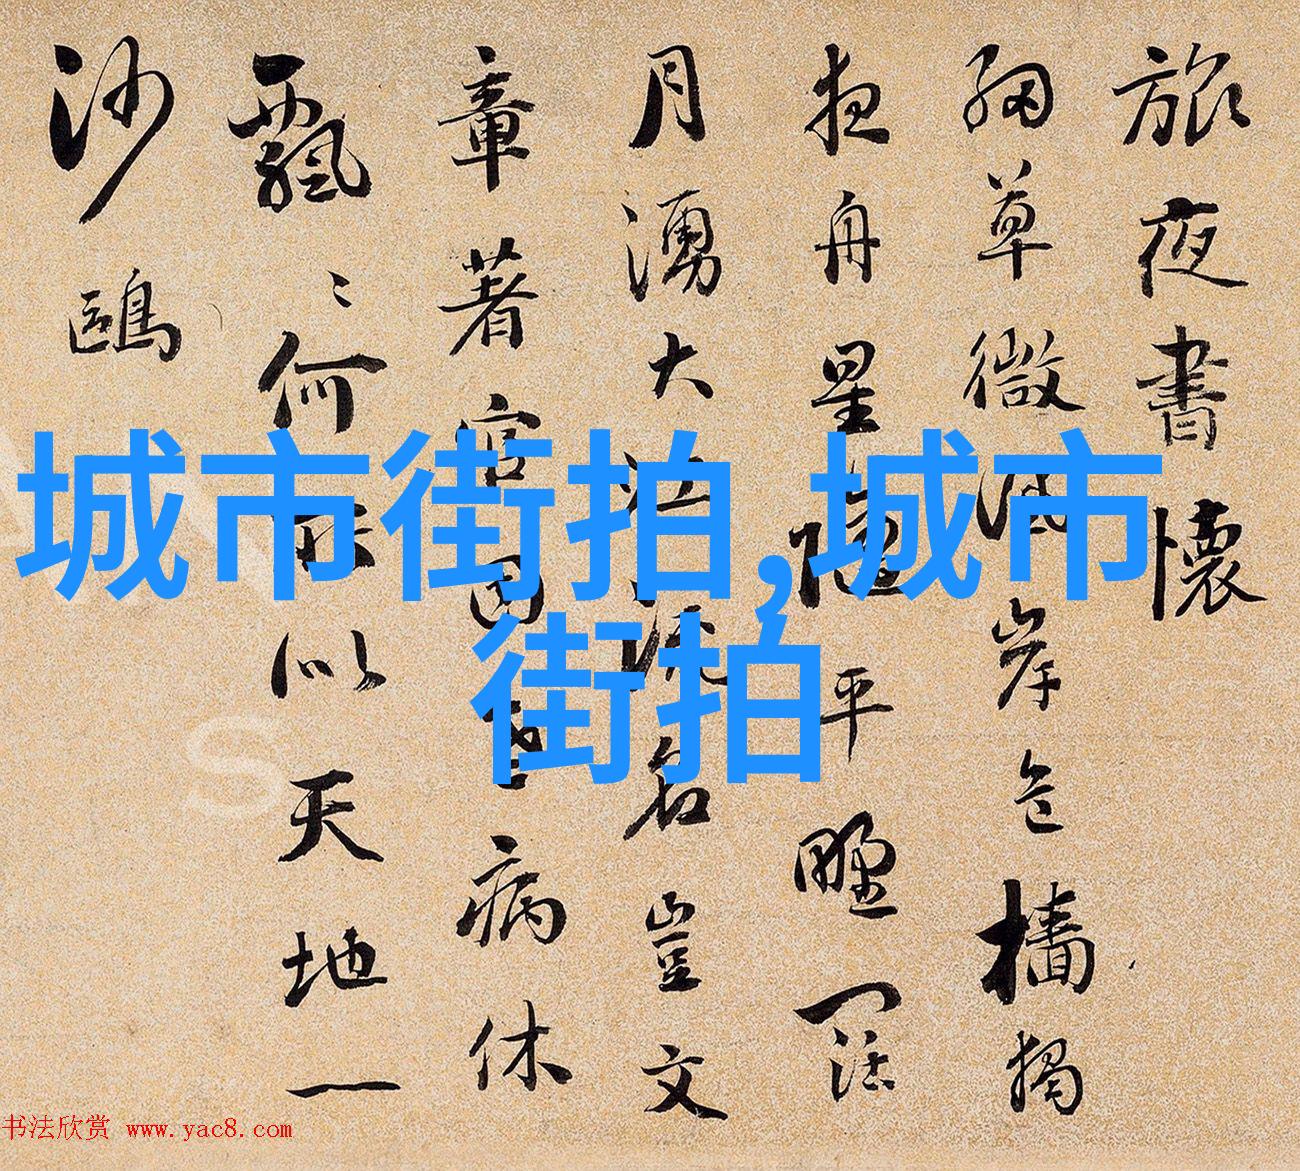 旅夜書懷
細草微風岸危檣獨
夜舟星隨平野闊
月湧大江流名豈文
章著官因老病休
飄〻何所似天地一
沙鷗
城市街拍,城市
街拍
书法欣赏 www.yac8.com